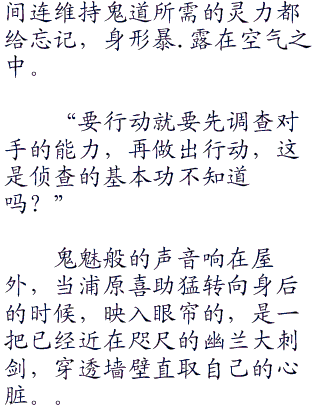 间连维持鬼道所需的灵力都
给忘记，身形暴.露在空气之
中。
“要行动就要先调查对
手的能力，再做出行动，这
是侦查的基本功不知道
吗？”
鬼魅般的声音响在屋
外，当浦原喜助猛转向身后
的时候，映入眼帘的，是一
把已经近在咫尺的幽兰大刺
剑，穿透墙壁直取自己的心
脏。。